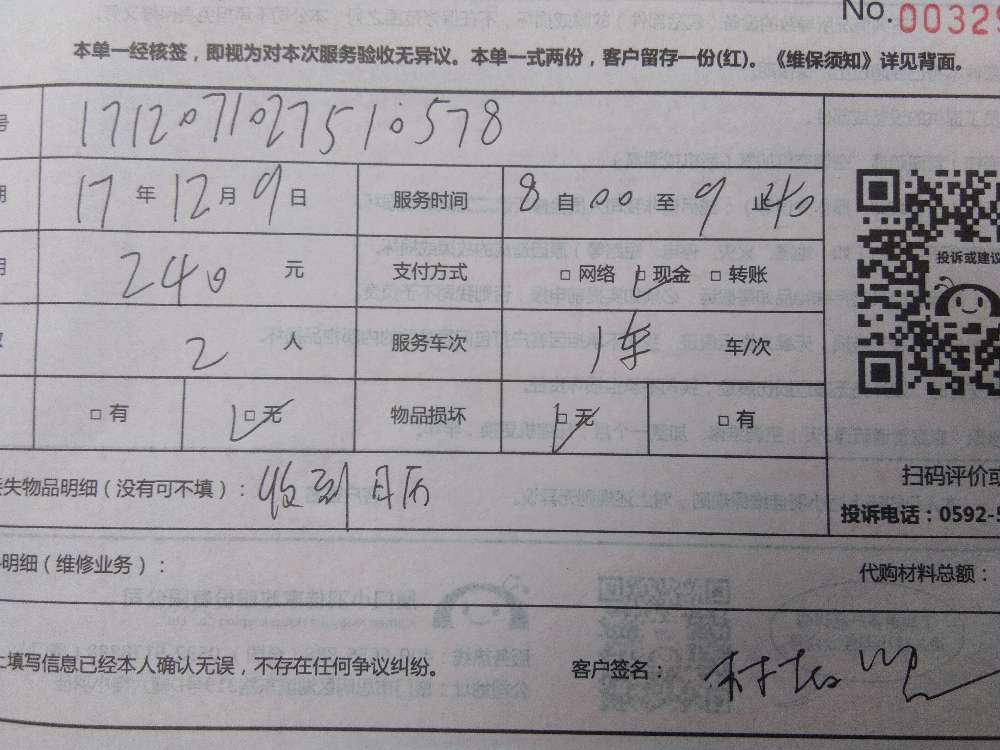 No. 00329
本单一经核签，即视为对本次服务验收无异议。本单一式两份，客户留存一份(红)。《维保须知》详见背面。
号 1712071027510578
期 17 年 12 月 9 日 服务时间 8 自 00 至 9 止 40
用 240 元 支付方式 □ 网络 □ 现金 □ 转账
2 人 服务车次 1 车/次
□ 有 □ 无 物品损坏 □ 无 □ 有
投诉或建议
丢失物品明细（没有可不填）： 收到日历
扫码评价或
投诉电话：0592-5
明细（维修业务）：
代购材料总额：
上填写信息已经本人确认无误，不存在任何争议纠纷。 客户签名：